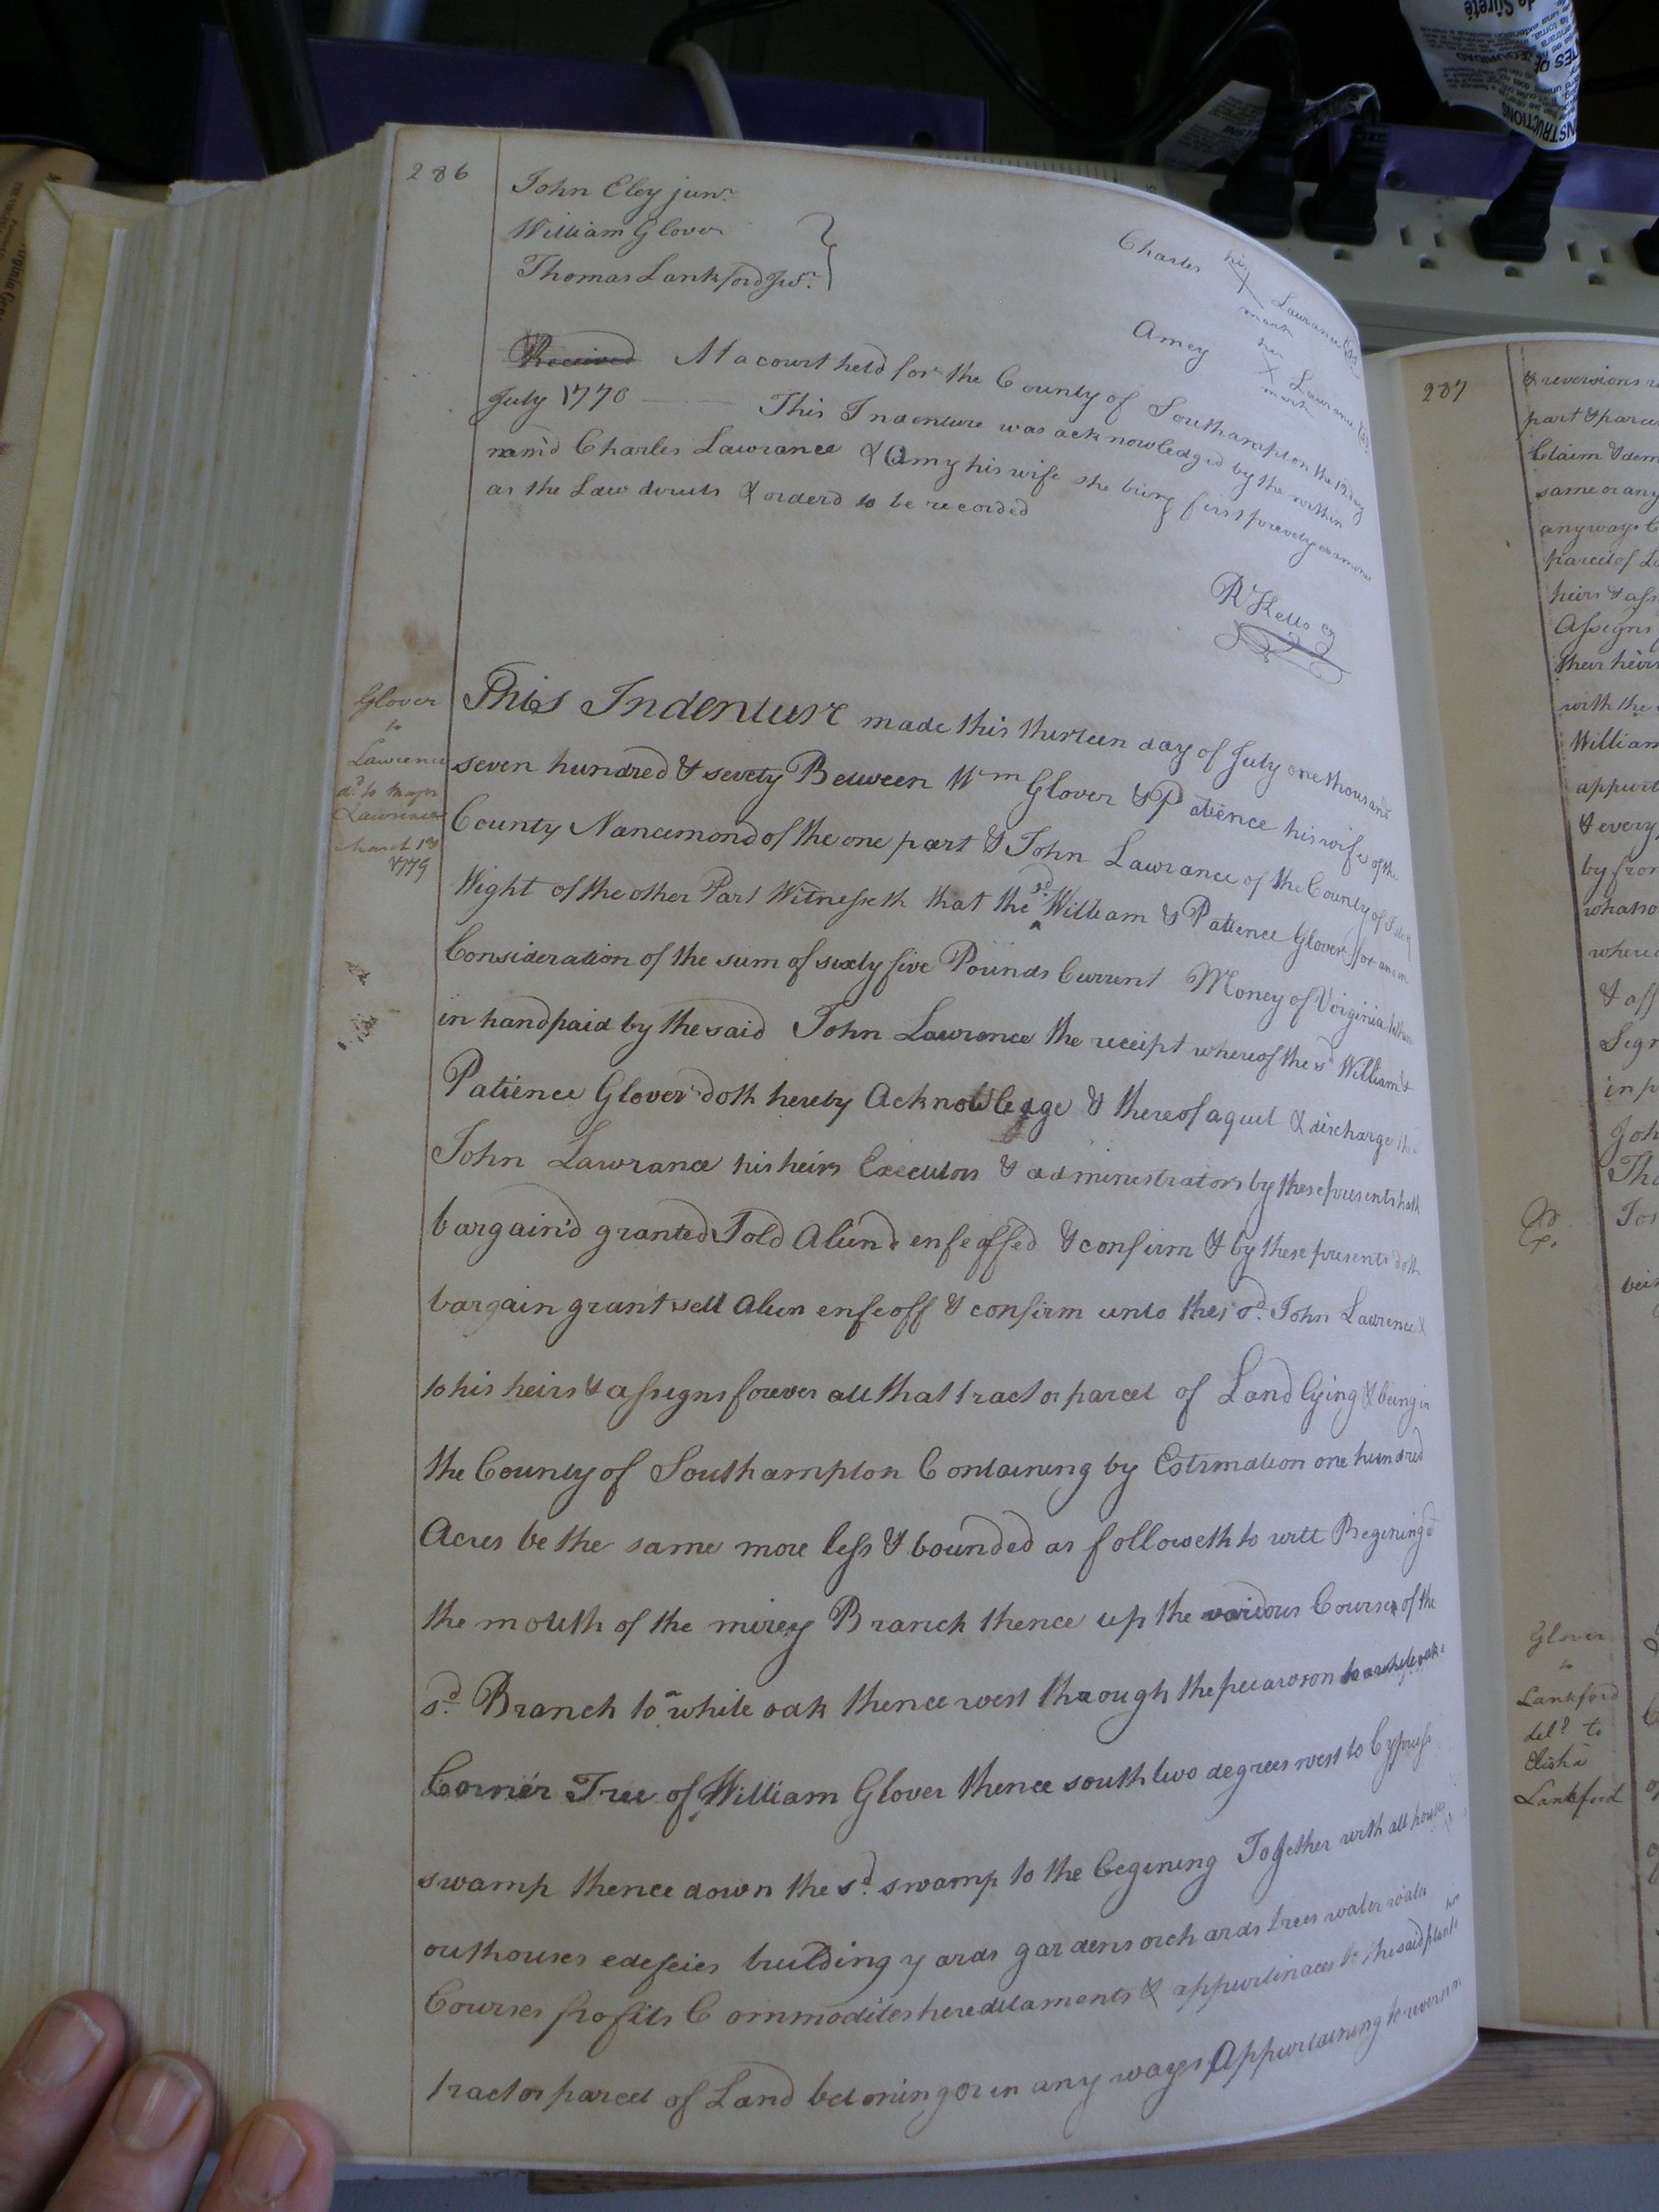 286
John Eley junr.
William Glover
Thomas Lankford Jur.
Charles his X mark Lawrance
Amey her X mark Lawrance
Received At a court held for the County of Southampton the 12 day
July 1770 This Indenture was acknowledged by the within
nam'd Charles Lawrance & Amy his wife she being first
as the Law directs & orderd to be recorded
R Kello
Glover
to
Lawrence
March 1st
1779
This Indenture made this thirteen day of July one thousand
seven hundred & sevety Between Wm Glover & Patience his wife of the
County Nancemond of the one part & John Lawrance of the County of
Wight of the other Part Witnesseth that the sd. William & Patience Glover for and in
Consideration of the sum of sixty five Pounds Current Money of Virginia
in hand paid by the said John Lawrence the receipt whereof the sd William &
Patience Glover doth hereby Acknowledge & thereof aquit & discharge
John Lawrance his heirs Executors & administrators by these presents hath
bargain'd granted Sold Alien'd enfeoffed & confirm & by these presents doth
bargain grant sell alien enfeoff & confirm unto the sd. John Lawrence &
to his heirs & assigns forever all that tract or parcel of Land lying & being in
the County of Southampton Containing by Estimation one hundred
Acres be the same more less & bounded as followeth to witt Begining
the mouth of the mirey Branch thence up the various Courses of the
sd. Branch to a white oak thence west through the pecawson to a white oak
Corner Tree of William Glover thence south two degrees west to Cypress
swamp thence down the sd. swamp to the begining Together with all houses
outhouses edefeies building yards gardens orchards trees water
Courses profits Commodites hereditaments & appurtinaces to the said
tract or parcel of Land beloning or in any ways Appurtaining
287
& reversions
part & parcel
Claim & dem
same or any
any ways
parcel of
heirs & ass
Assigns
their heirs
with the
William
appurt
& every
by from
whatso
where
& ass
Sign
in p
Joh
Tho
Glover
to
Lankford
deld. to
Elisha
Lankford